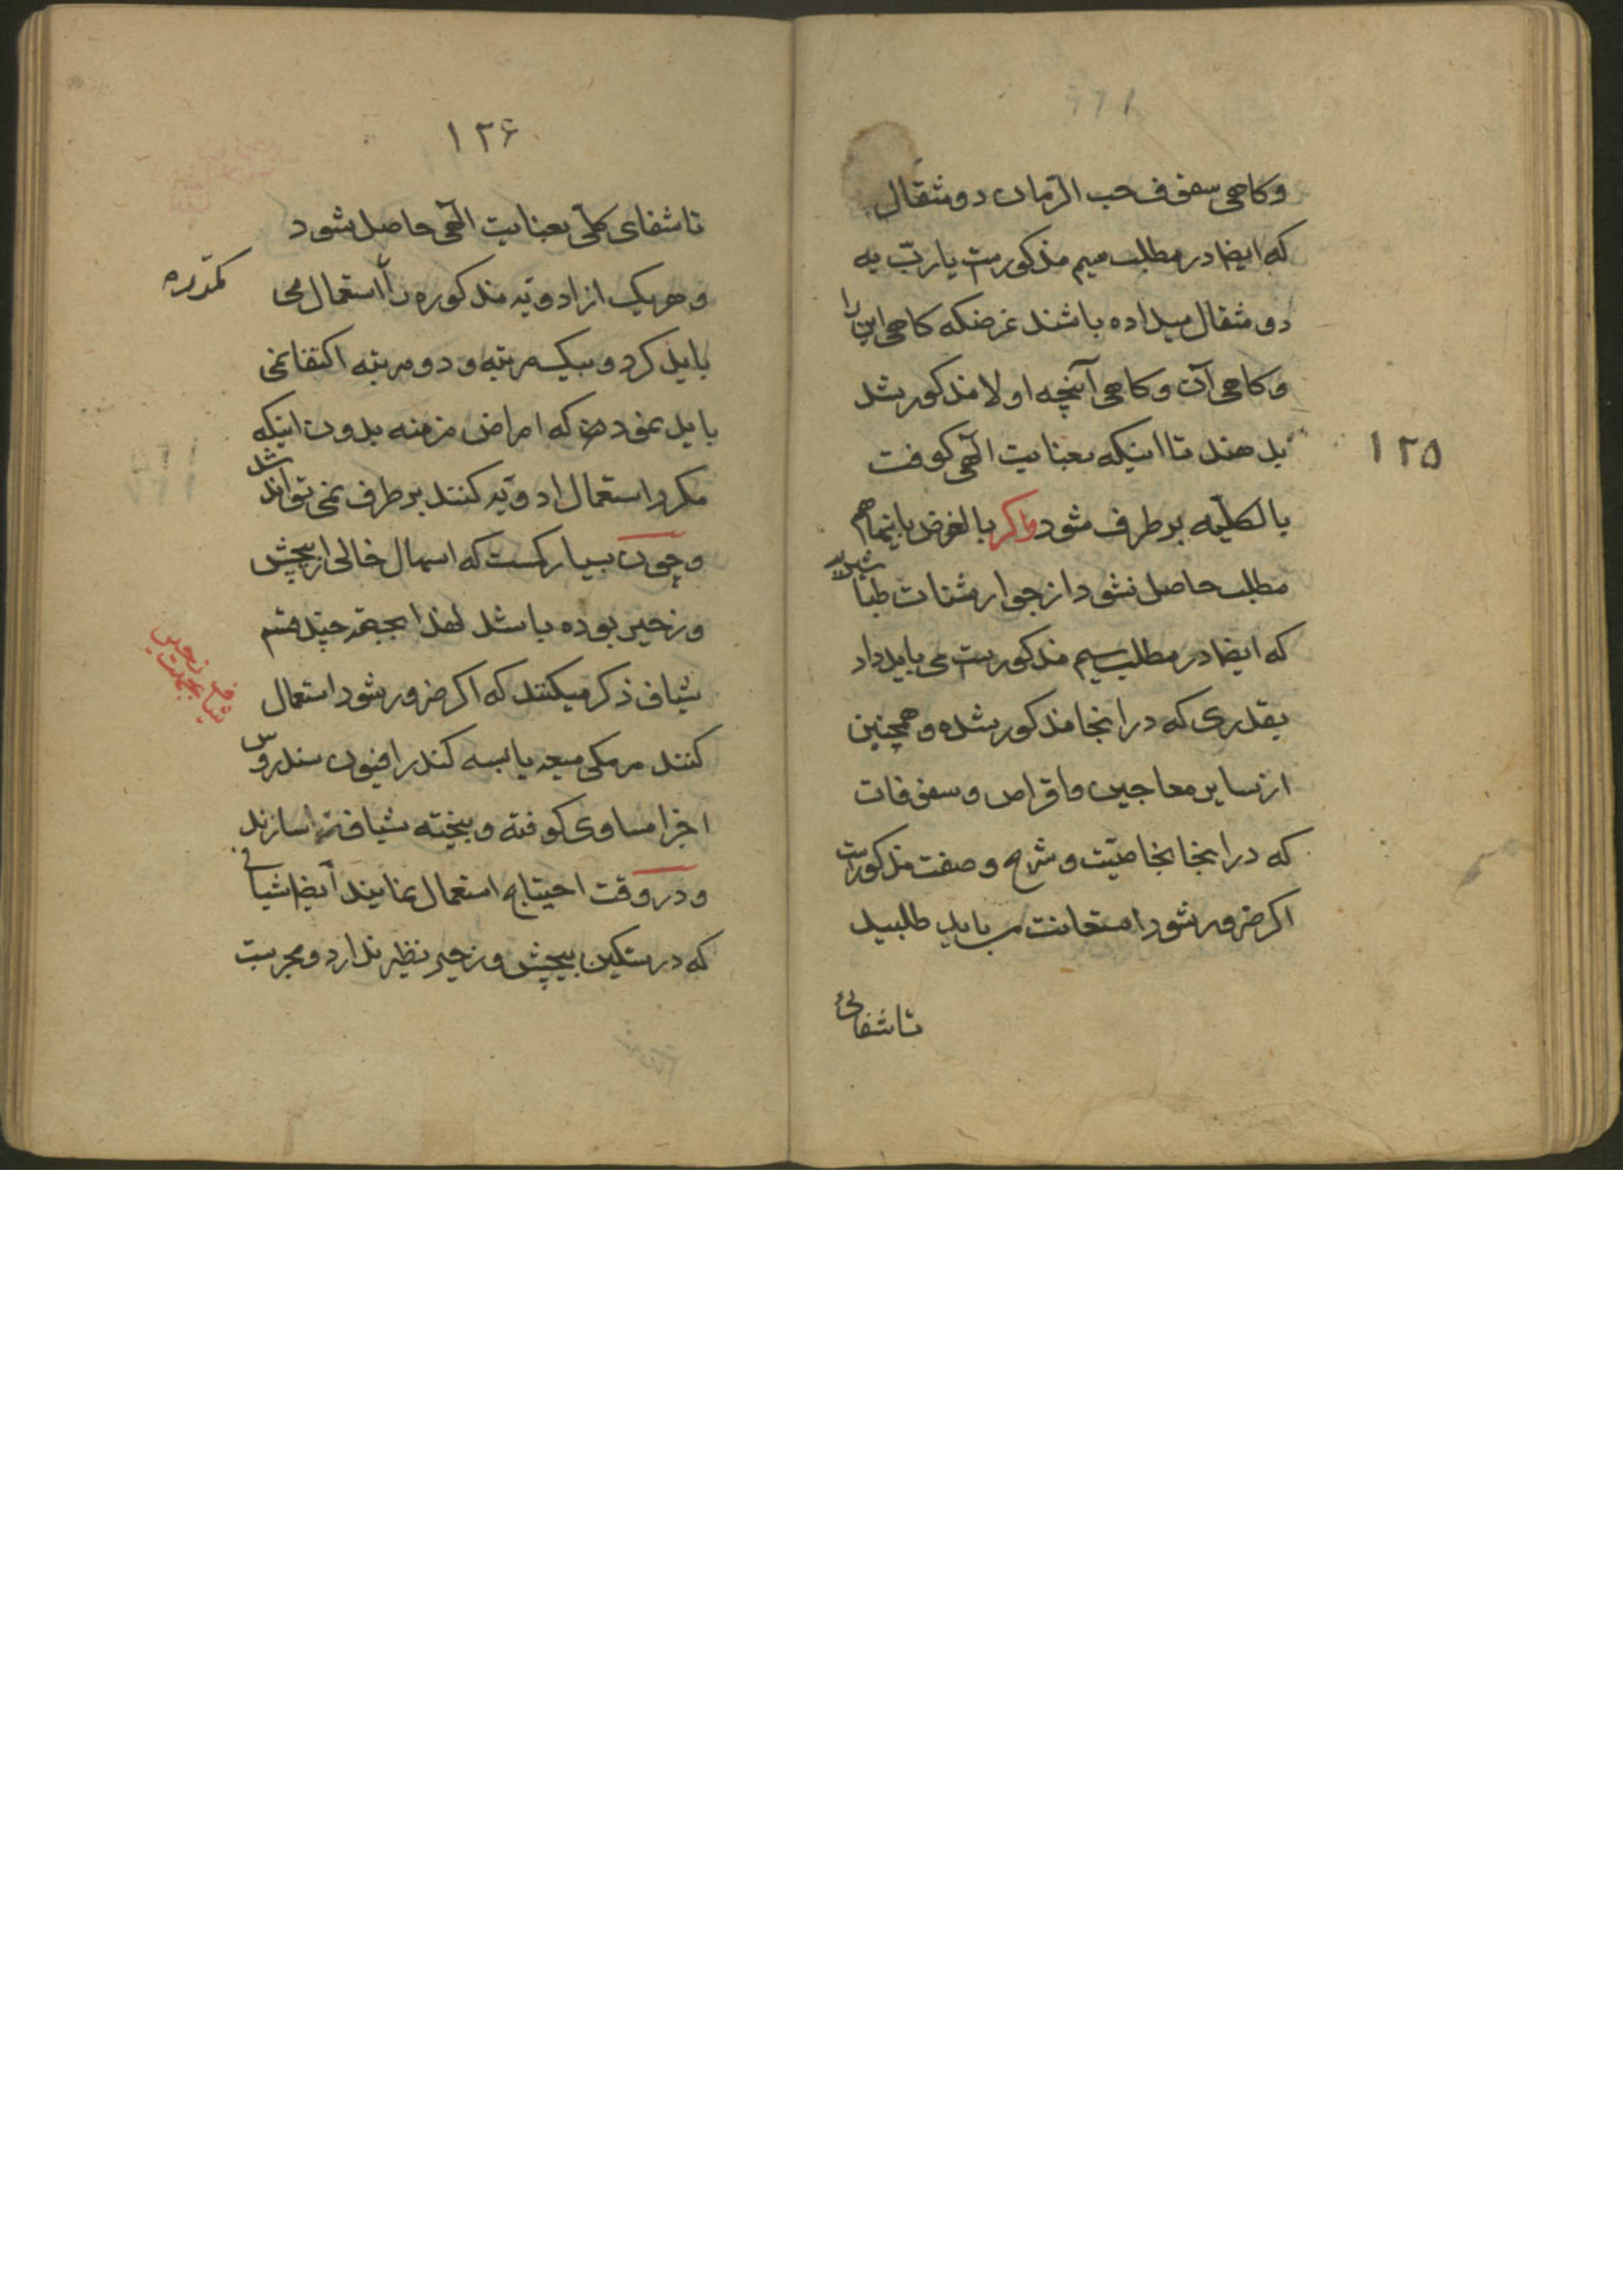 ۱۲۵
وکاهی سفوف حب الرمان دو مثقال
که ایضا در مطلب سیم مذکورست یا ربّ به
دو مثقال میداده باشند غرضکه کاهی این را
وکاهی آن وکاهی آنچه اولا مذکور شد
بدهند تا اینکه بعنایت الهی کوفت
بالکلیه بر طرف شود واکر بالفرض باینها هم
مطلب حاصل نشود از جوارشنات طباشیر
که ایضا در مطلب سیم مذکورست می باید داد
بقدری که در انجا مذکور شده و همچنین
از سایر معاجین واقراص وسفوفات
که در انجا بخاصیّت وشرح وصفت مذکورست
اکر ضرور شود استعانت می باید طلبید
تا شفائی
۱۲۶
تا شفای کلّی بعنایت الهی حاصل شود
وهریک از ادویّه مذکوره را استعمال می
باید کرد وبیک مرتبه و دو مرتبه اکتفا نمی
باید نمود که امراض مزمنه بدون اینکه
مکرر استعمال ادویّه کنند بر طرف نمی تواند شد
وچون بسیار کمست که اسهال خالی از پیچش
وزحیر بوده باشد لهذا بجهة چند قسم
شیاف ذکر میکنند که اکر ضرور شود استعمال
کنند مر مکی میعه یابسه کندر افیون سندروس
اجزا مساوی کوفته و بیخته شیافها سازند
ودر وقت احتیاج استعمال نمایند ایضا شیافی
که در تسکین پیچش وزحیر نظیر ندارد و مجربست
شیاف زحیر